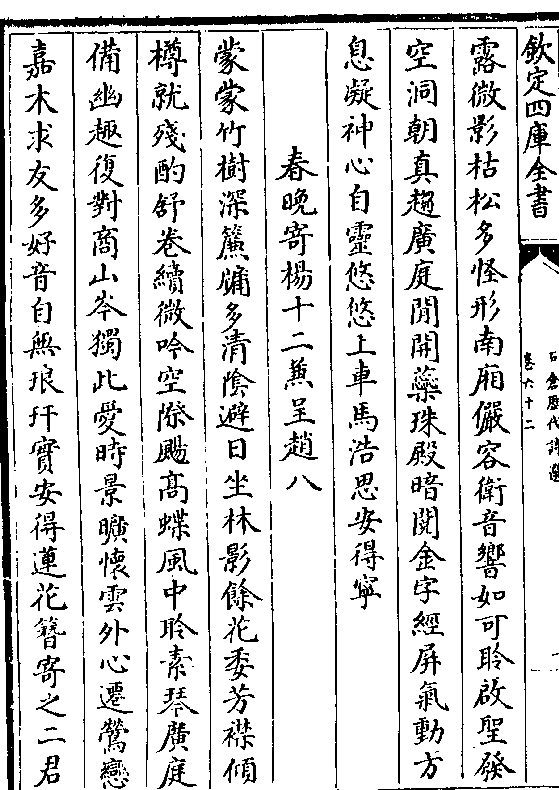 欽定四庫全書
石倉歴代詩選
卷六十二
露微影枯松多怪形南廂儼容衛音響如可聆啟聖發
空洞朝真趨廣庭閒開蘂珠殿暗閱金字經屏氣動方
息凝神心自靈悠悠上車馬浩思安得寧
春晚寄楊十二兼呈趙八
蒙蒙竹樹深簾牖多清陰避日坐林影餘花委芳襟傾
樽就殘酌舒卷續微吟空際颺高蝶風中聆素琴廣庭
備幽趣復對商山岑獨此愛時景曠懷雲外心遷鶯戀
嘉木求友多好音自無琅玕實安得蓮花簪寄之二君